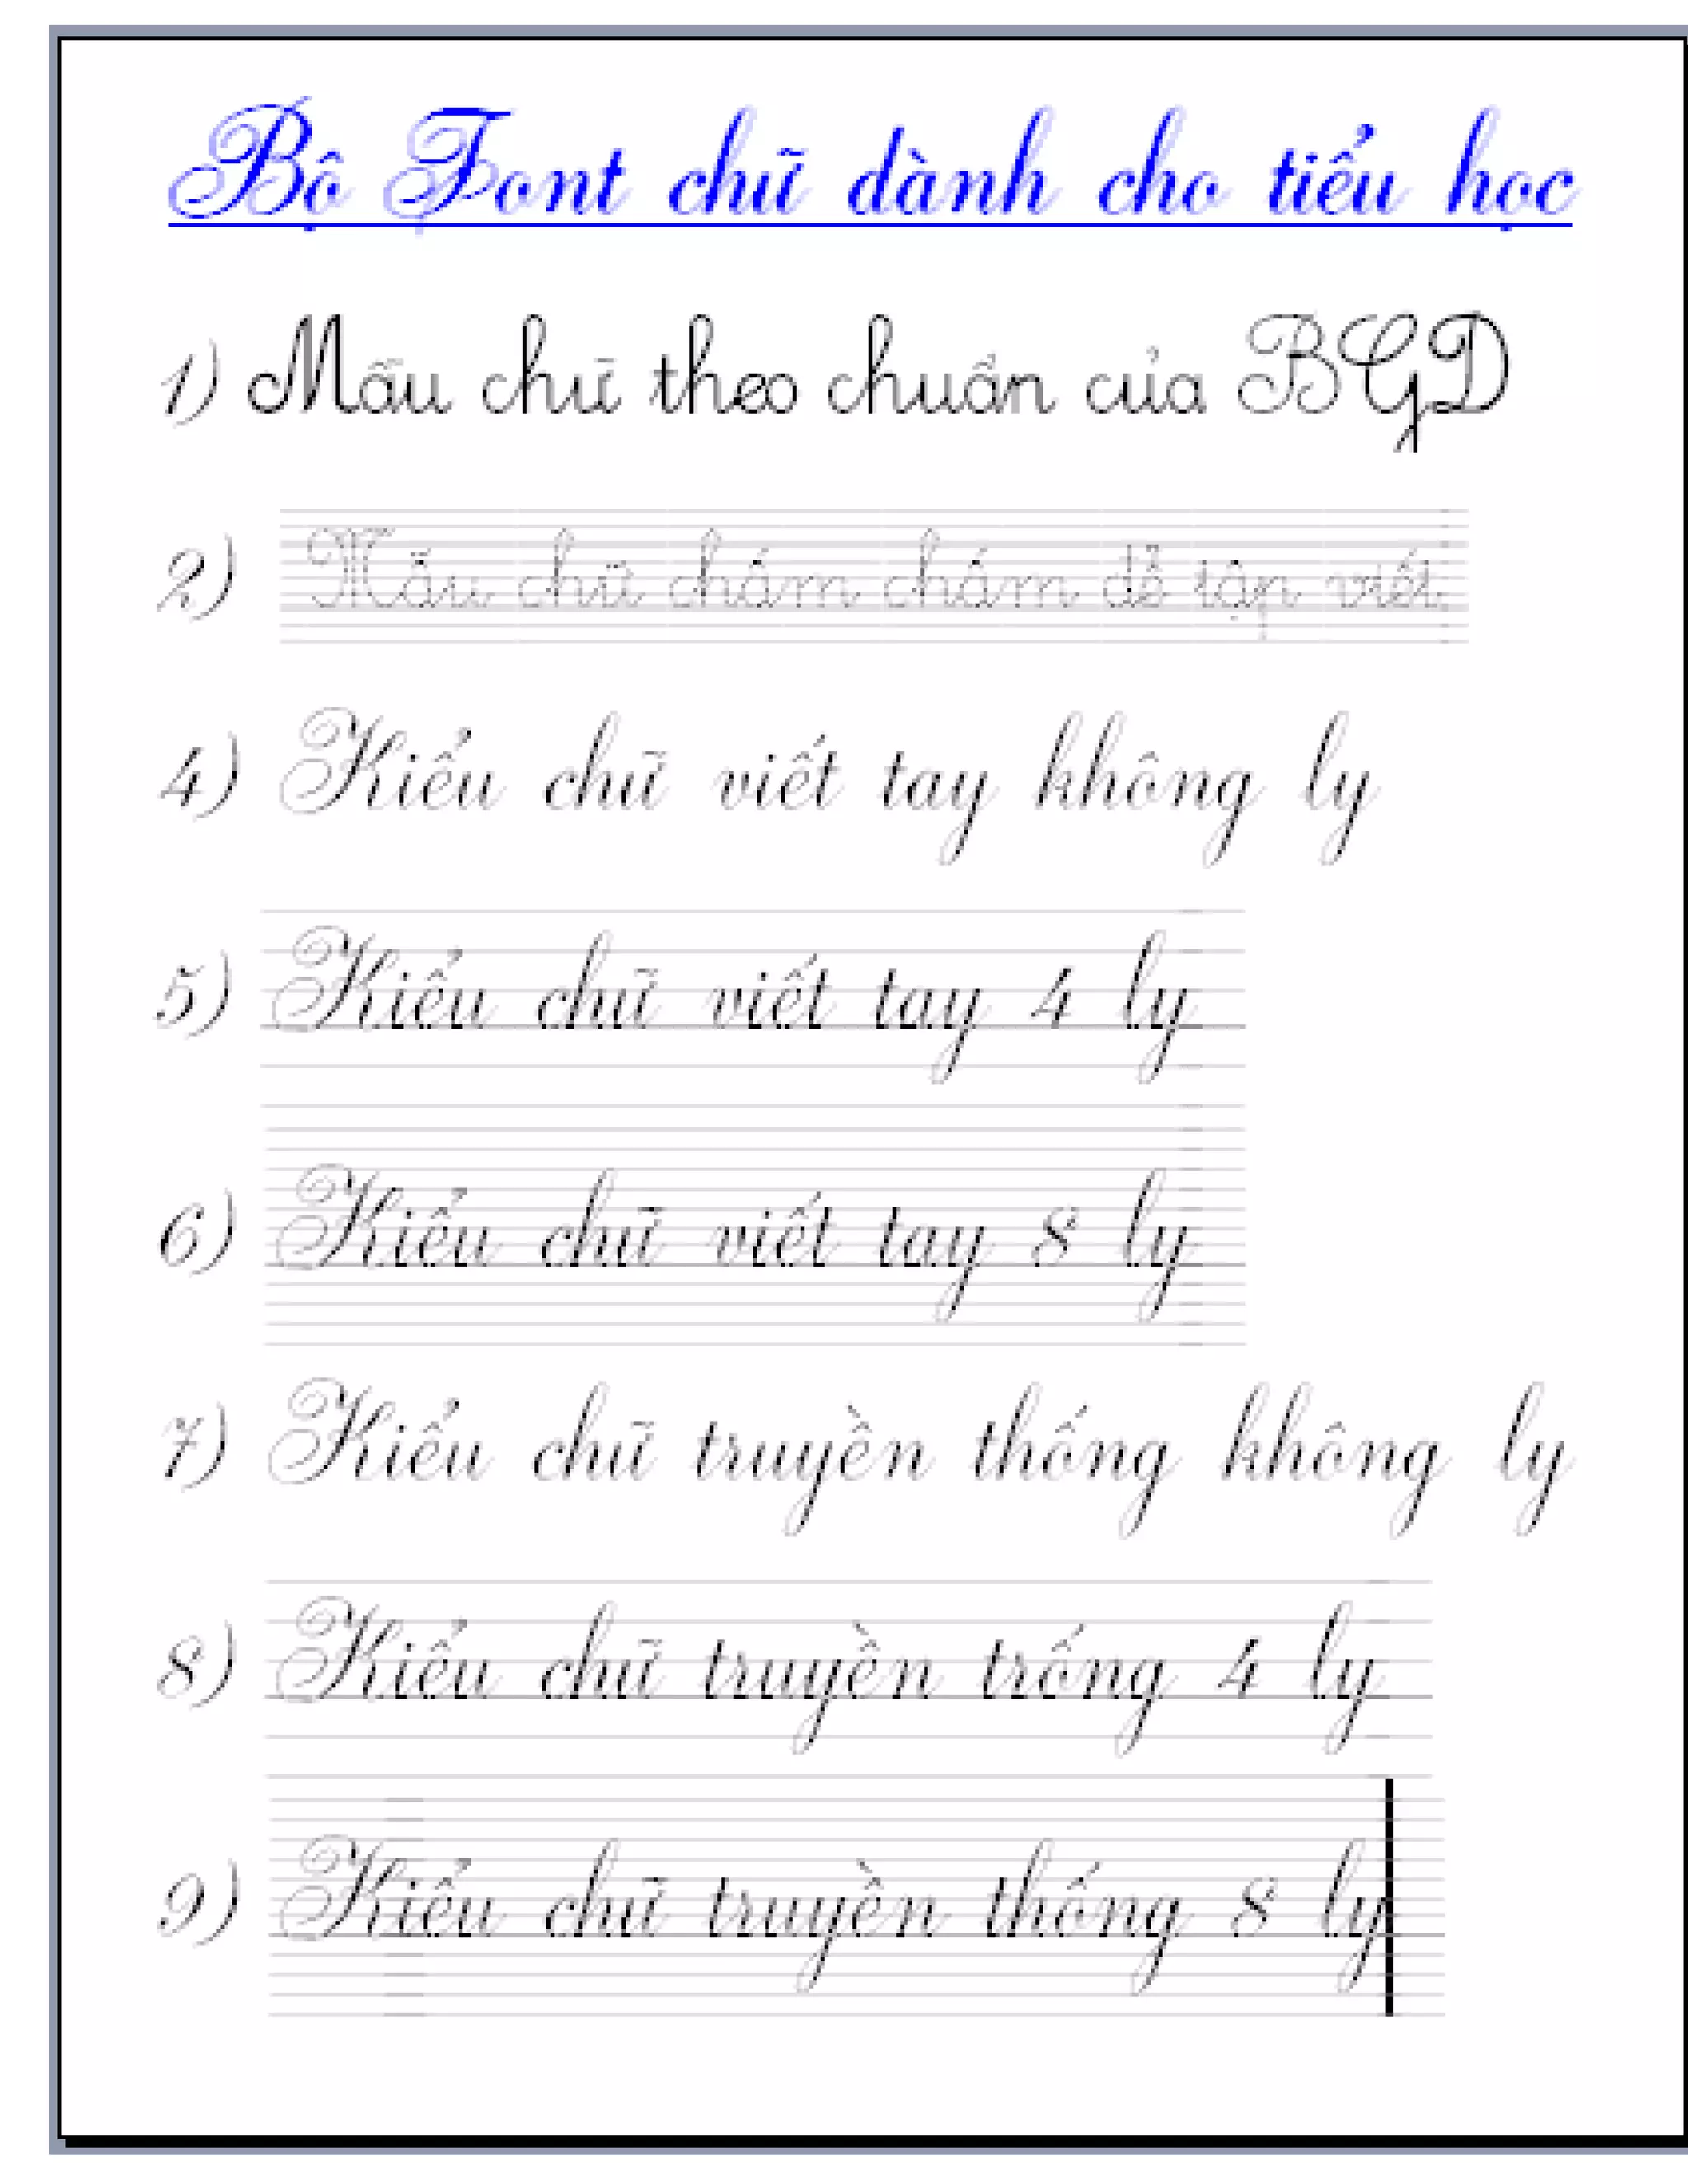 Bộ Font chữ dành cho tiểu học
1) Mẫu chữ theo chuẩn của BGD
2) Mẫu chữ chấm chấm để tập viết.
4) Kiểu chữ viết tay không ly
5) Kiểu chữ viết tay 4 ly
6) Kiểu chữ viết tay 8 ly
7) Kiểu chữ truyền thống không ly
8) Kiểu chữ truyền trống 4 ly
9) Kiểu chữ truyền thống 8 ly